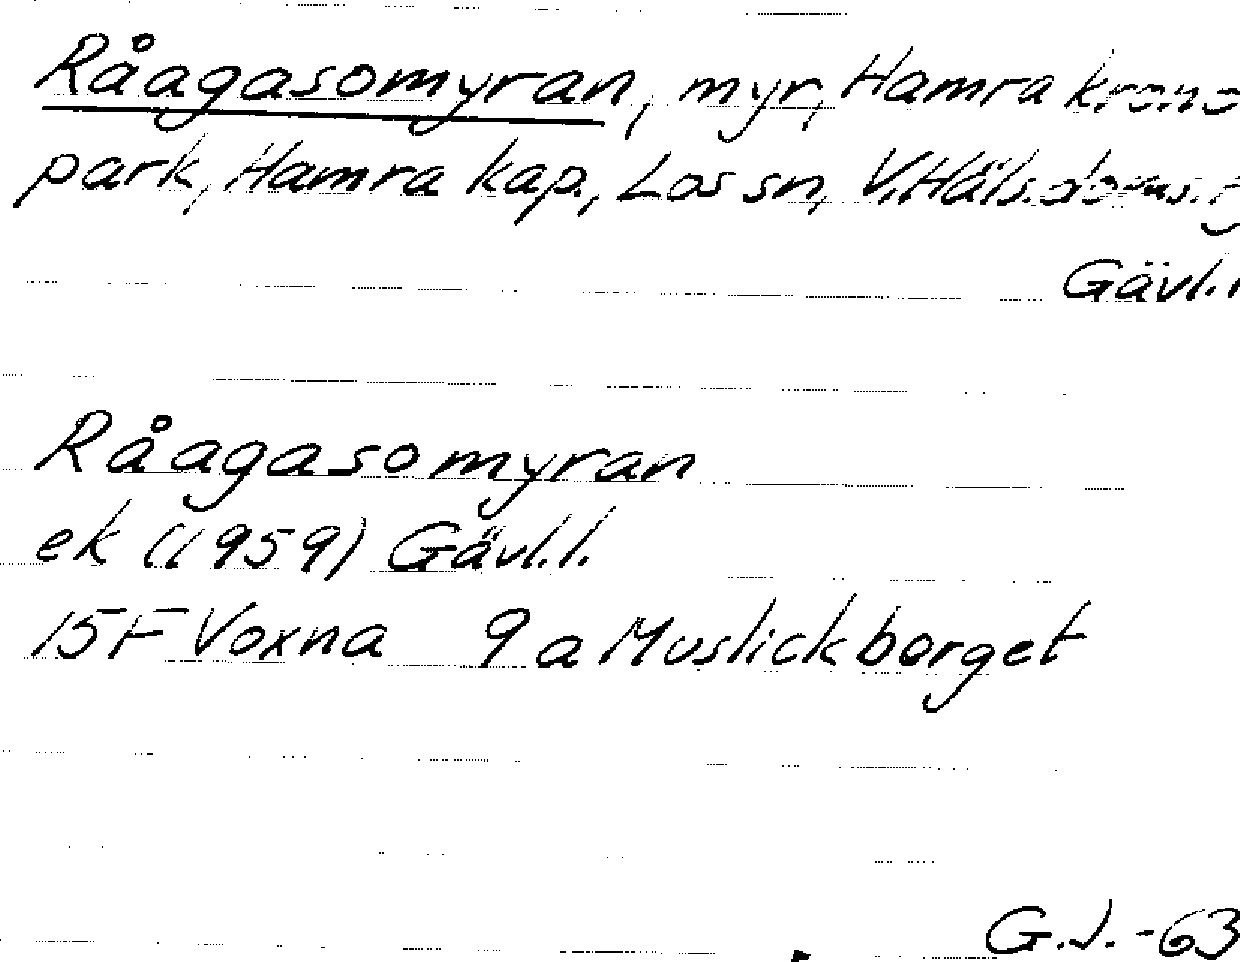 Råagasomyran, myr, Hamra krono
park, Hamra kap., Los sn, V.Häls.doms.
Gävl.l
Råagasomyran
ek (1959) Gävl.l.
15F Voxna 9a Muslickberget
G.J.-63